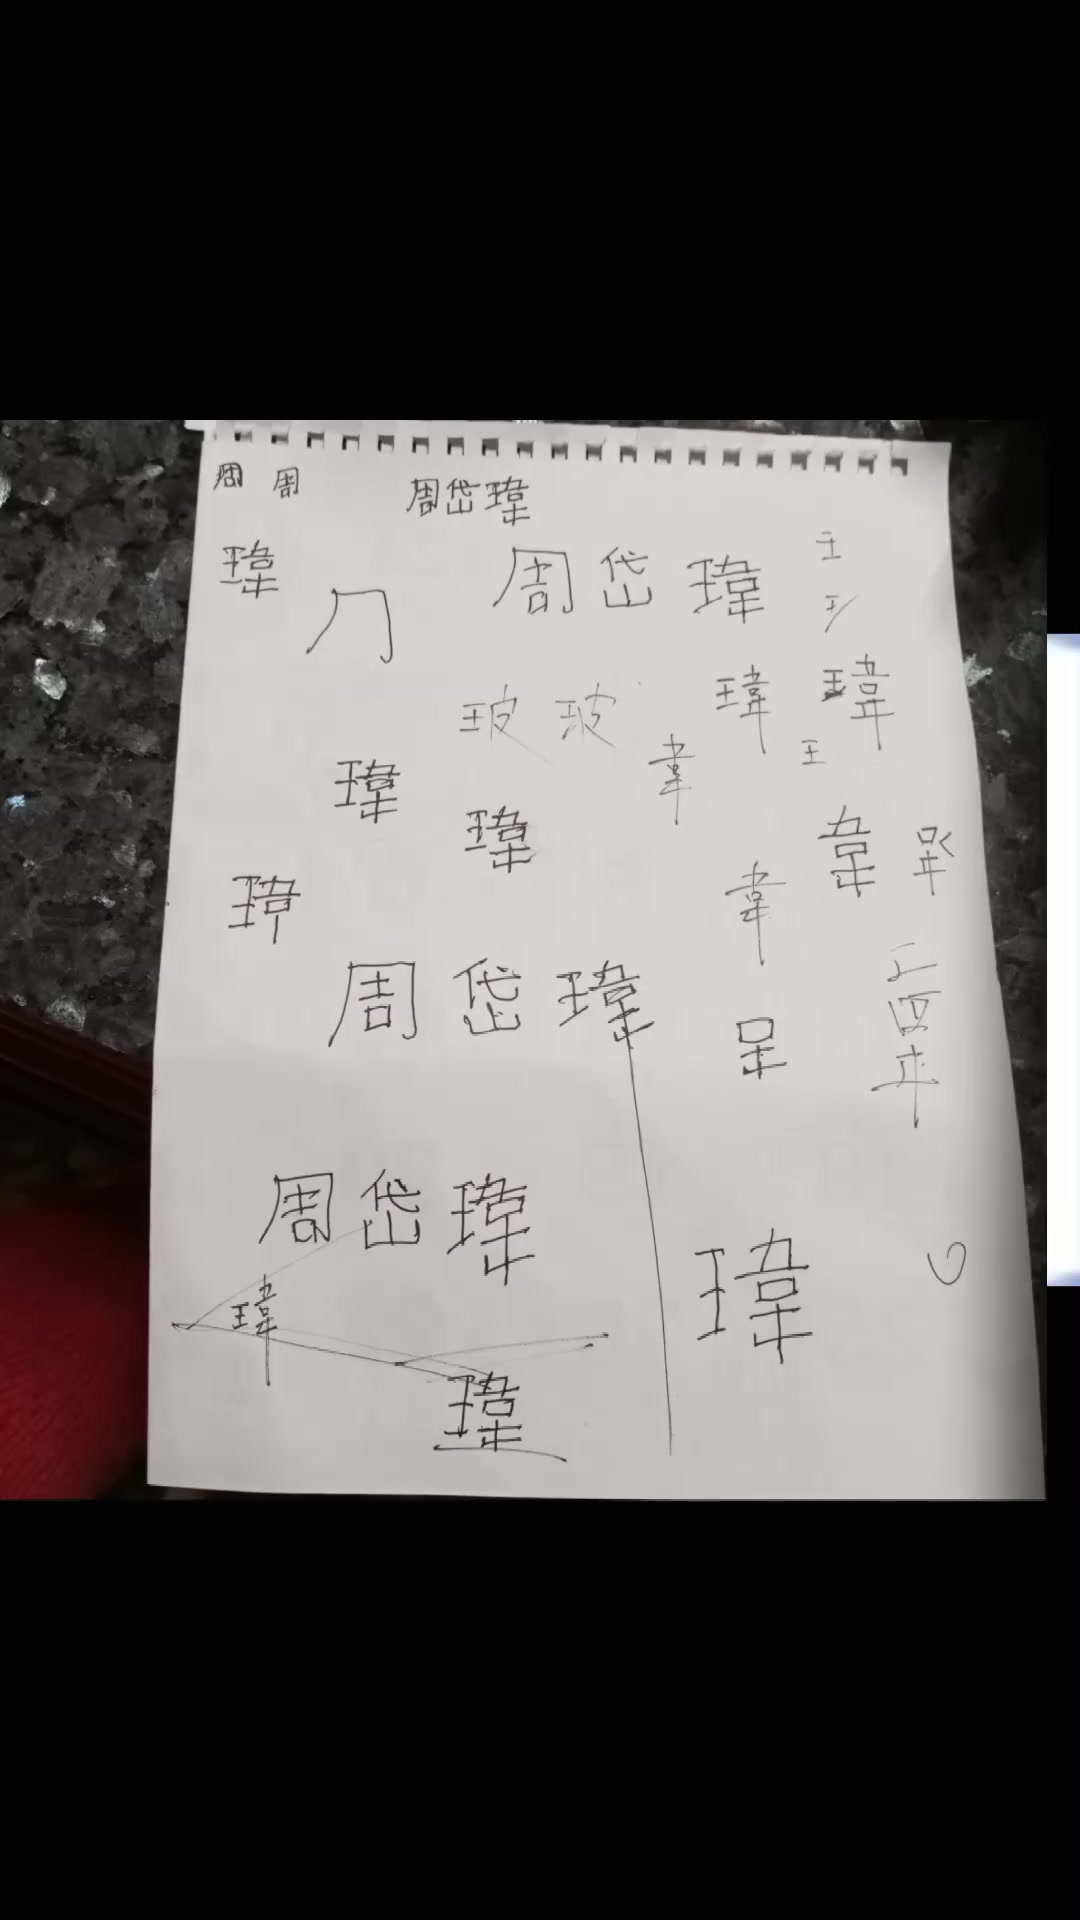 周 周 周岱瑋
瑋 周 岱 瑋 王
王
玻 玻 瑋 瑋
瑋 韋 王
瑋 韋
瑋 韋
周 岱 瑋
周 岱 瑋
瑋 瑋
瑋